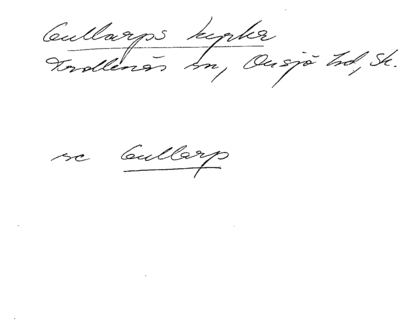 Gullarps kyrka
Trollenäs sn, Onsjö hd, Sk.
se Gullarp